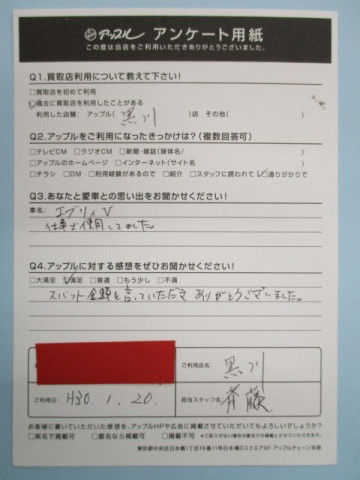 アップル アンケート用紙
この度は当店をご利用いただきありがとうございました。
Q1.買取店利用について教えて下さい!
□買取店を初めて利用
□過去に買取店を利用したことがある
利用した店舗: アップル( 黒川 )店 その他( )
Q2.アップルをご利用になったきっかけは?(複数回答可)
□テレビCM □ラジオCM □新聞・雑誌(媒体名/ )
□アップルのホームページ □インターネット(サイト名 )
□チラシ □DM □利用経験があるので □紹介 □スタッフに誘われて ☑通りがかりで
Q3.あなたと愛車との思い出をお聞かせください!
車名: エブリィV
仕事で使用してました。
Q4.アップルに対する感想をぜひお聞かせください!
□大満足 ☑満足 □普通 □もう少し □不満
スパット金額を言っていただき ありがとうございました。
ご利用店名 黒川
ご利用日: H30. 1. 20.
担当スタッフ名 斉藤
お客様に書いていただいた感想を、アップルHPや広告に掲載させていただいてもよろしいでしょうか?
□実名で掲載可 □匿名なら掲載可 □掲載不可
東京都中央区日本橋1丁目16番11号日本橋Dスクエア8F アップルチェーン本部